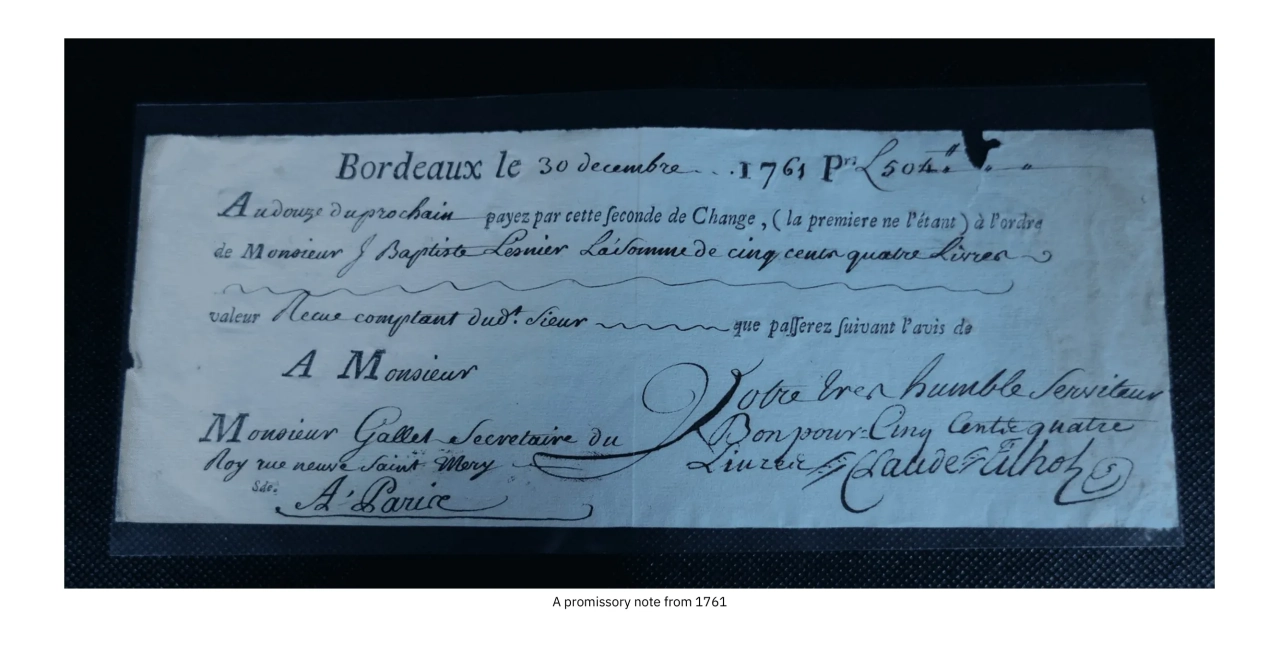 Bordeaux le 30 decembre 1761 Pr. L 504.
Au douze du prochain payez par cette seconde de Change, (la premiere ne l'étant) à l'ordre
de Monsieur J Baptiste Lesnier La somme de cinq cents quatre Livres
valeur Recue comptant dudt. Sieur que passerez suivant l'avis de
A Monsieur
Votre tres humble Serviteur
Monsieur Gallet Secretaire du
Bon pour Cinq Cents quatre
Roy rue neuve Saint Mery
Livres Claude
A Paris
A promissory note from 1761